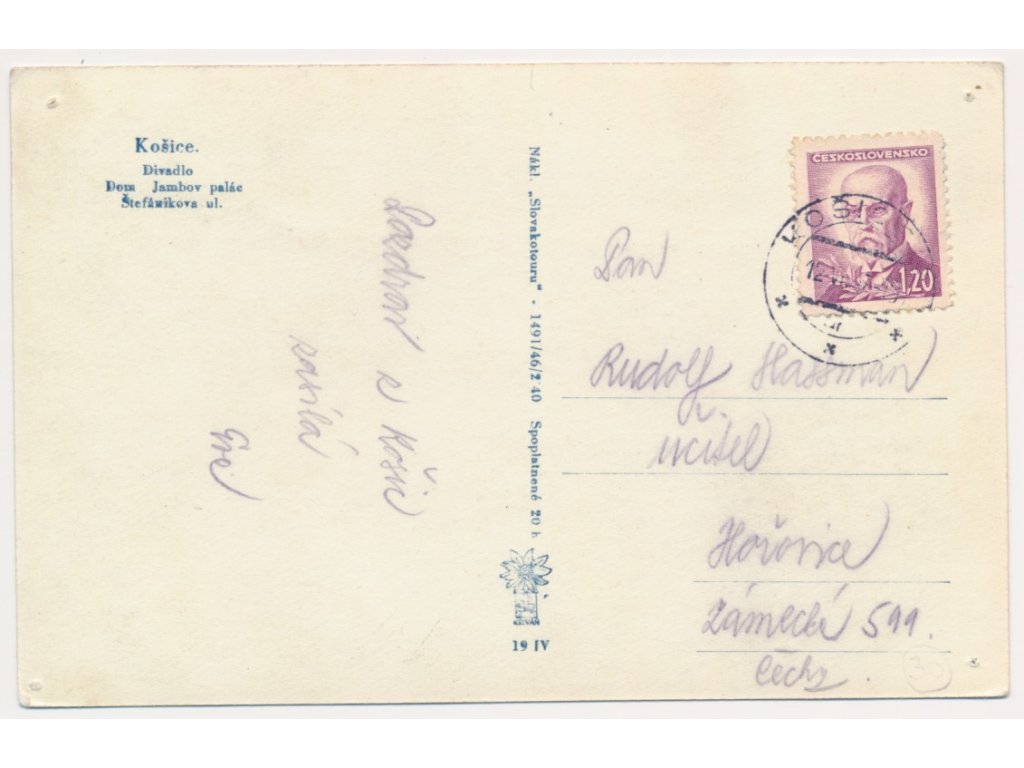 Košice.
Divadlo
Dom Jambov palác
Štefánikova ul.
Pozdrav z Košic
zasílá
Nákl. „Slovakotouru" - 1491/46/2·40 Spoplatnené 20 h
KRIVÁN
19 IV
ČESKOSLOVENSKO
1,20
KOŠIC
Pan
Rudolf Hassman
učitel
Hořovice
Zámecká 599.
Čechy.
3